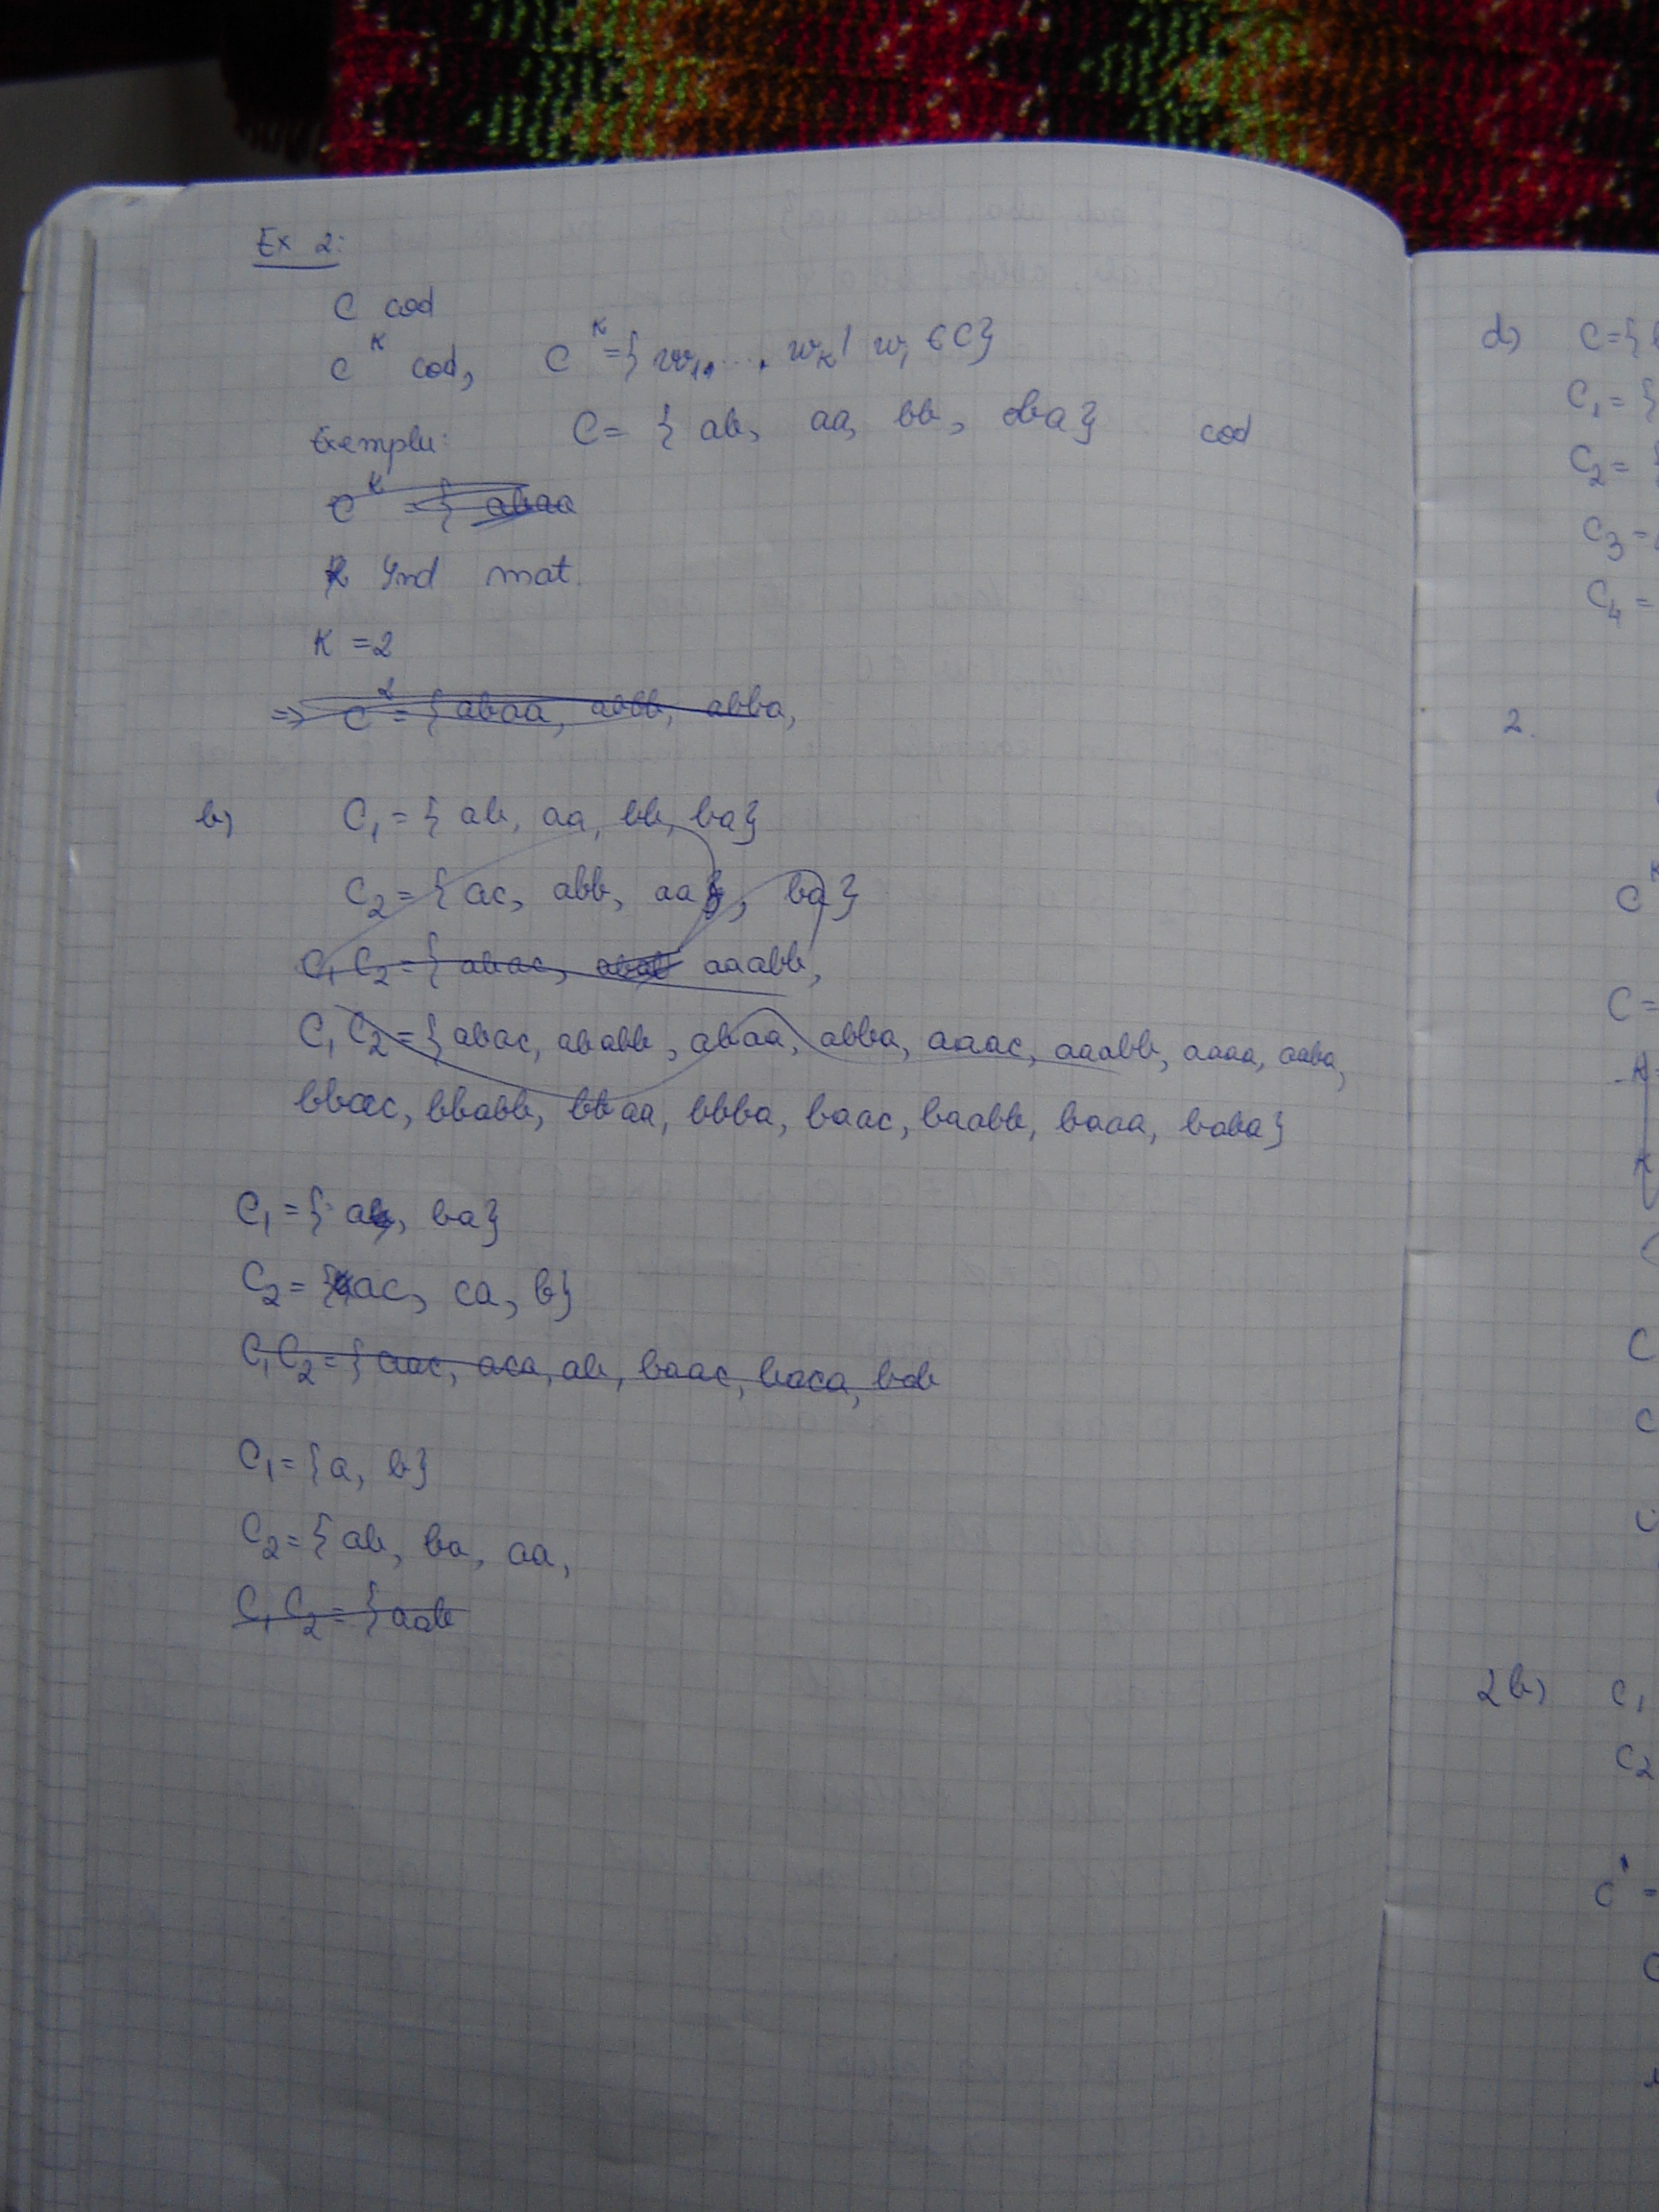 Ex 2:
C cod
C^K cod, C^K = { w1, ..., wK | wi ∈ C}
Exemplu: C = { ab, aa, bb, ba} cod
C^K = { abaa
Ind mat.
K = 2
=> C^2 = { abaa, abbb, abba,
b) C1 = { ab, aa, bb, ba}
C2 = { ac, abb, aa, ba}
C1 C2 = { abac, aaabb,
C1 C2 = { abac, ababb, abaa, abba, aaac, aaabb, aaaa, aaba,
bbac, bbabb, bbaa, bbba, baac, baabb, baaa, baba}
C1 = { a, ba}
C2 = { ac, ca, b}
C1 C2 = { aac, aca, ab, baac, baca, bab
C1 = { a, b}
C2 = { ab, ba, aa,
C1 C2 = { aab
d) C = {
C1 = {
C2 =
C3 =
C4 =
2.
C^K
C =
K
C
C
2b) C1
C2
C' =